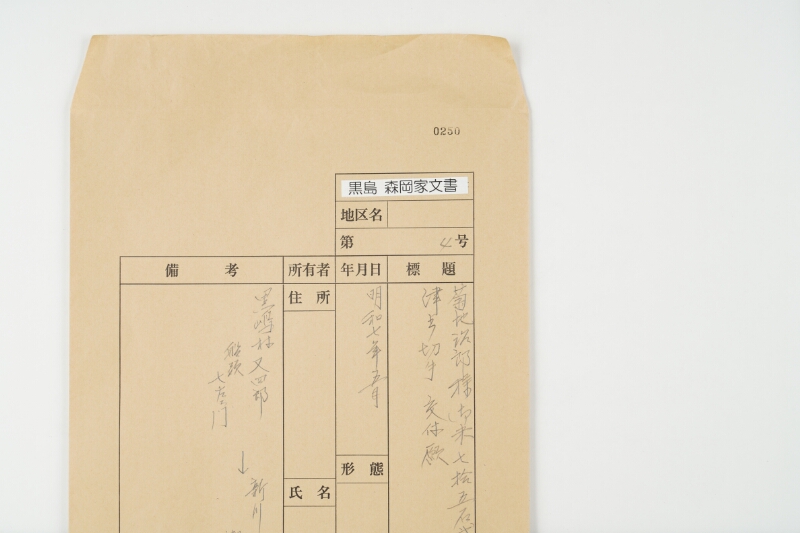 0250
黒島 森岡家文書
地区名
第 4号
標題
菊地治郎様御米七拾五石
津出切手 交付願
年月日
明和七年五月
形態
所有者
住所
氏名
備考
黒嶋村又四郎
船頭
七左衛門
↓
新川